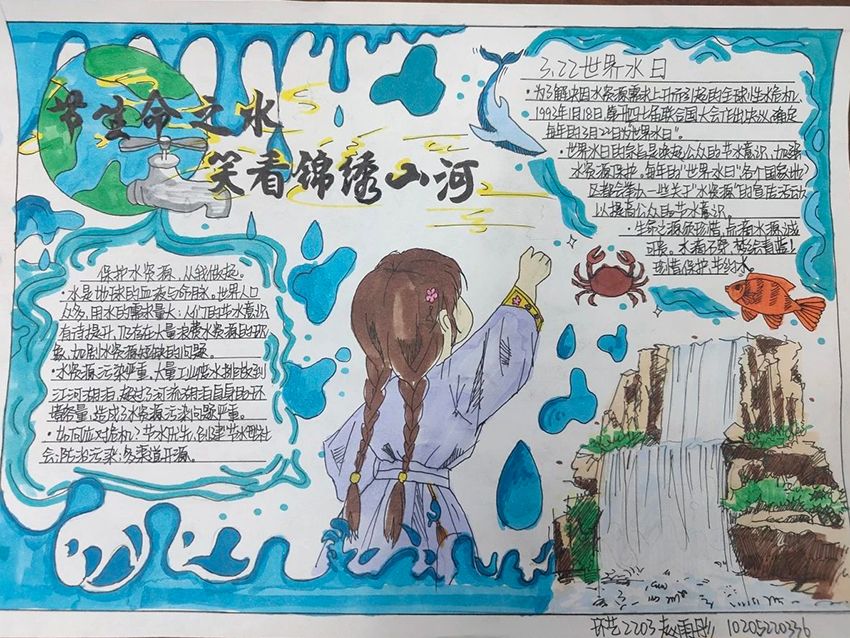 节生命之水
笑看锦绣山河
3.22世界水日
·为了解决因水资源需求上升而引起的全球性水危机,
1993年1月18日,第四十七届联合国大会作出决议,确定
每年的3月22日为"世界水日"。
·世界水日的宗旨是唤起公众的节水意识,加强
水资源保护。每年的"世界水日"各个国家地
区都会举办一些关于"水资源"的宣传活动
以提高公众的节水意识。
·生命之源应珍惜,点看水源诚
可贵。水看不尽,
珍惜保护,节约水。
保护水资源、从我做起。
·水是地球的血液与命脉。世界人口
众多,用水的需求量大;人们的节水意识
有待提升,仍存在大量浪费水资源的现
象,加剧水资源短缺的问题。
·水资源污染严重。大量工业废水排放到
江河湖泊,超过了河流湖泊自身的环
境容量,造成了水资源污染问题严重。
·如何应对危机?节水优先,创建节水型社
会;防治污染;多渠道开源。
环艺2203 赵雨 10205220336